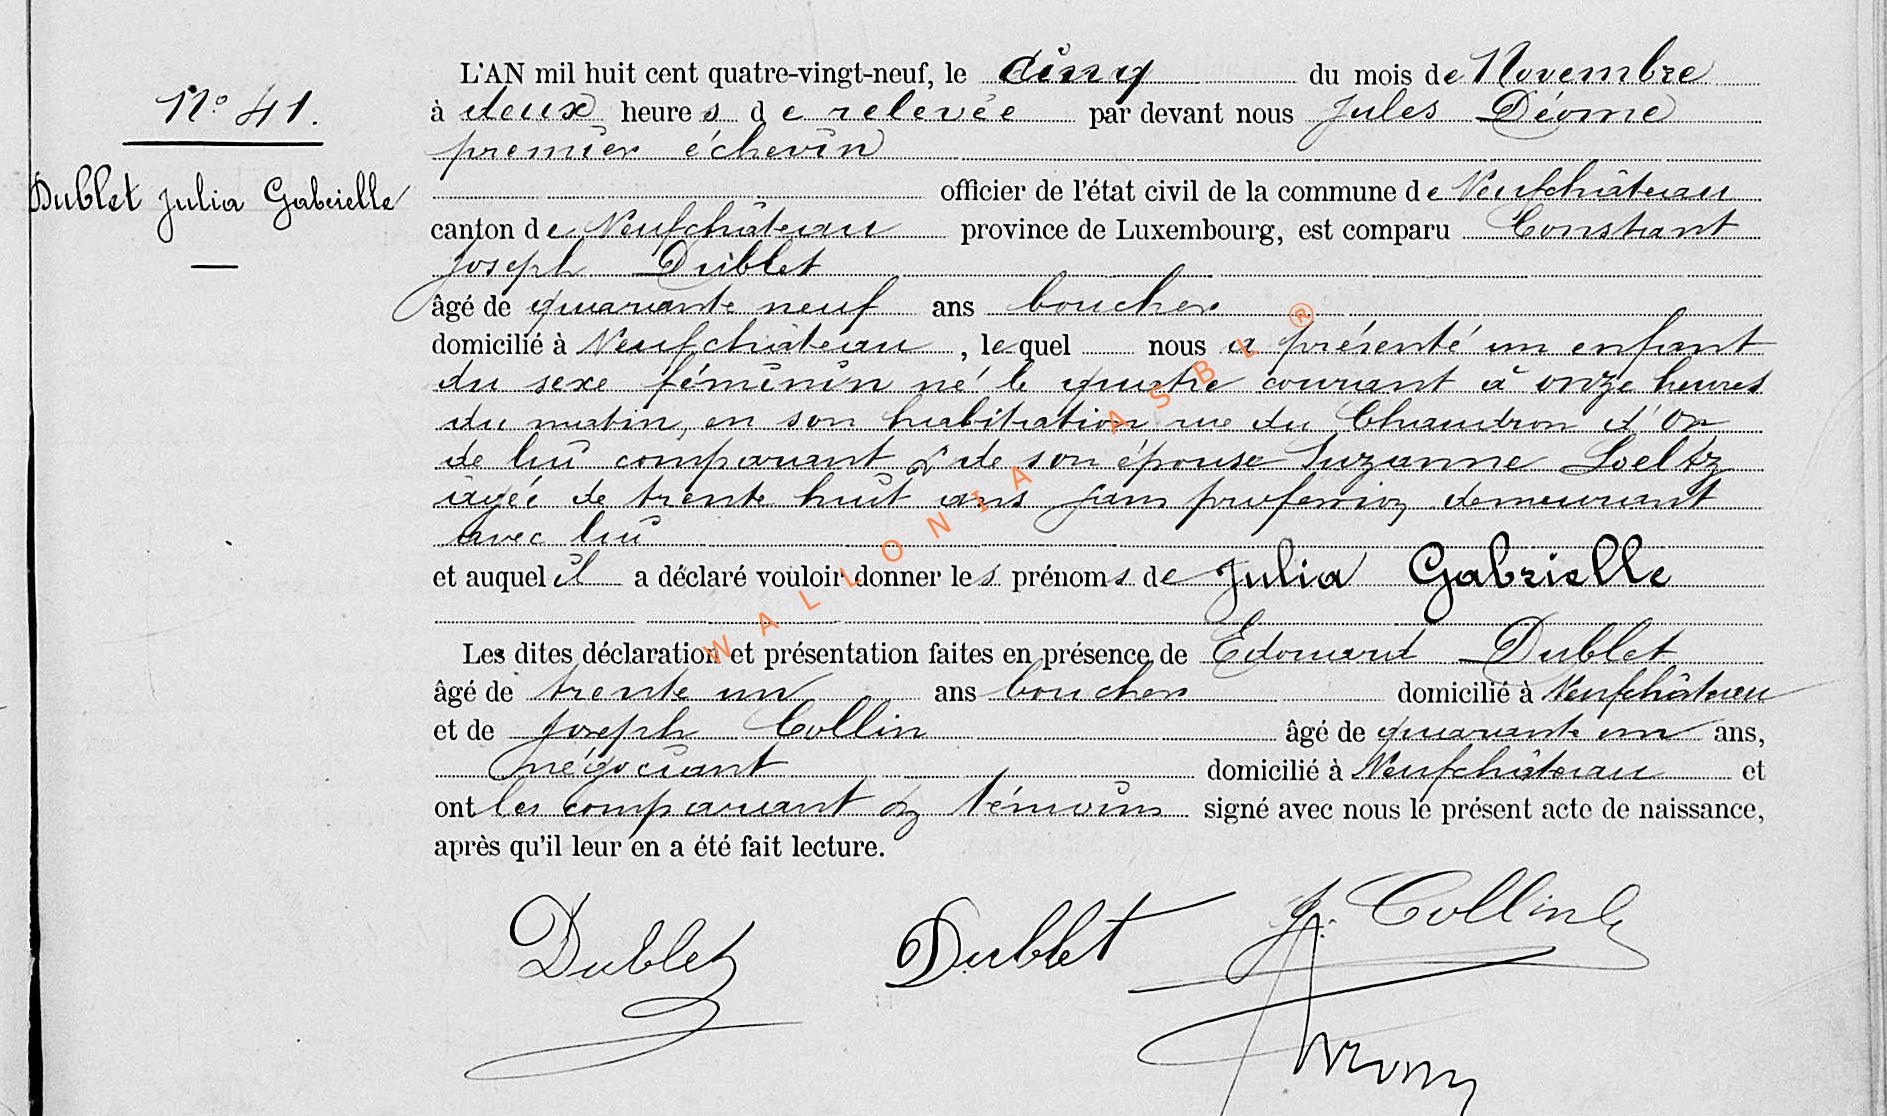 N° 41.
Dublet Julia Gabrielle
L'AN mil huit cent quatre-vingt-neuf, le cinq du mois de Novembre
à deux heures de relevée par devant nous Jules Déome
premier échevin
officier de l'état civil de la commune de Neufchâteau
canton de Neufchâteau province de Luxembourg, est comparu Constant
Joseph Dublet
âgé de quarante neuf ans boucher
domicilié à Neufchâteau, lequel nous a présenté un enfant
du sexe féminin né le quatre courant à onze heures
du matin, en son habitation rue du Chaudron d'Or
de lui comparant & de son épouse Suzanne Loeltz
âgée de trente huit ans sans profession demeurant
avec lui
et auquel il a déclaré vouloir donner les prénoms de Julia Gabrielle
Les dites déclaration et présentation faites en présence de Edouard Dublet
âgé de trente un ans boucher domicilié à Neufchâteau
et de Joseph Collin âgé de quarante un ans,
négociant domicilié à Neufchâteau et
ont les comparant & témoins signé avec nous le présent acte de naissance,
après qu'il leur en a été fait lecture.
Dublet Dublet J. Collin
WALLONIA ASBL ®